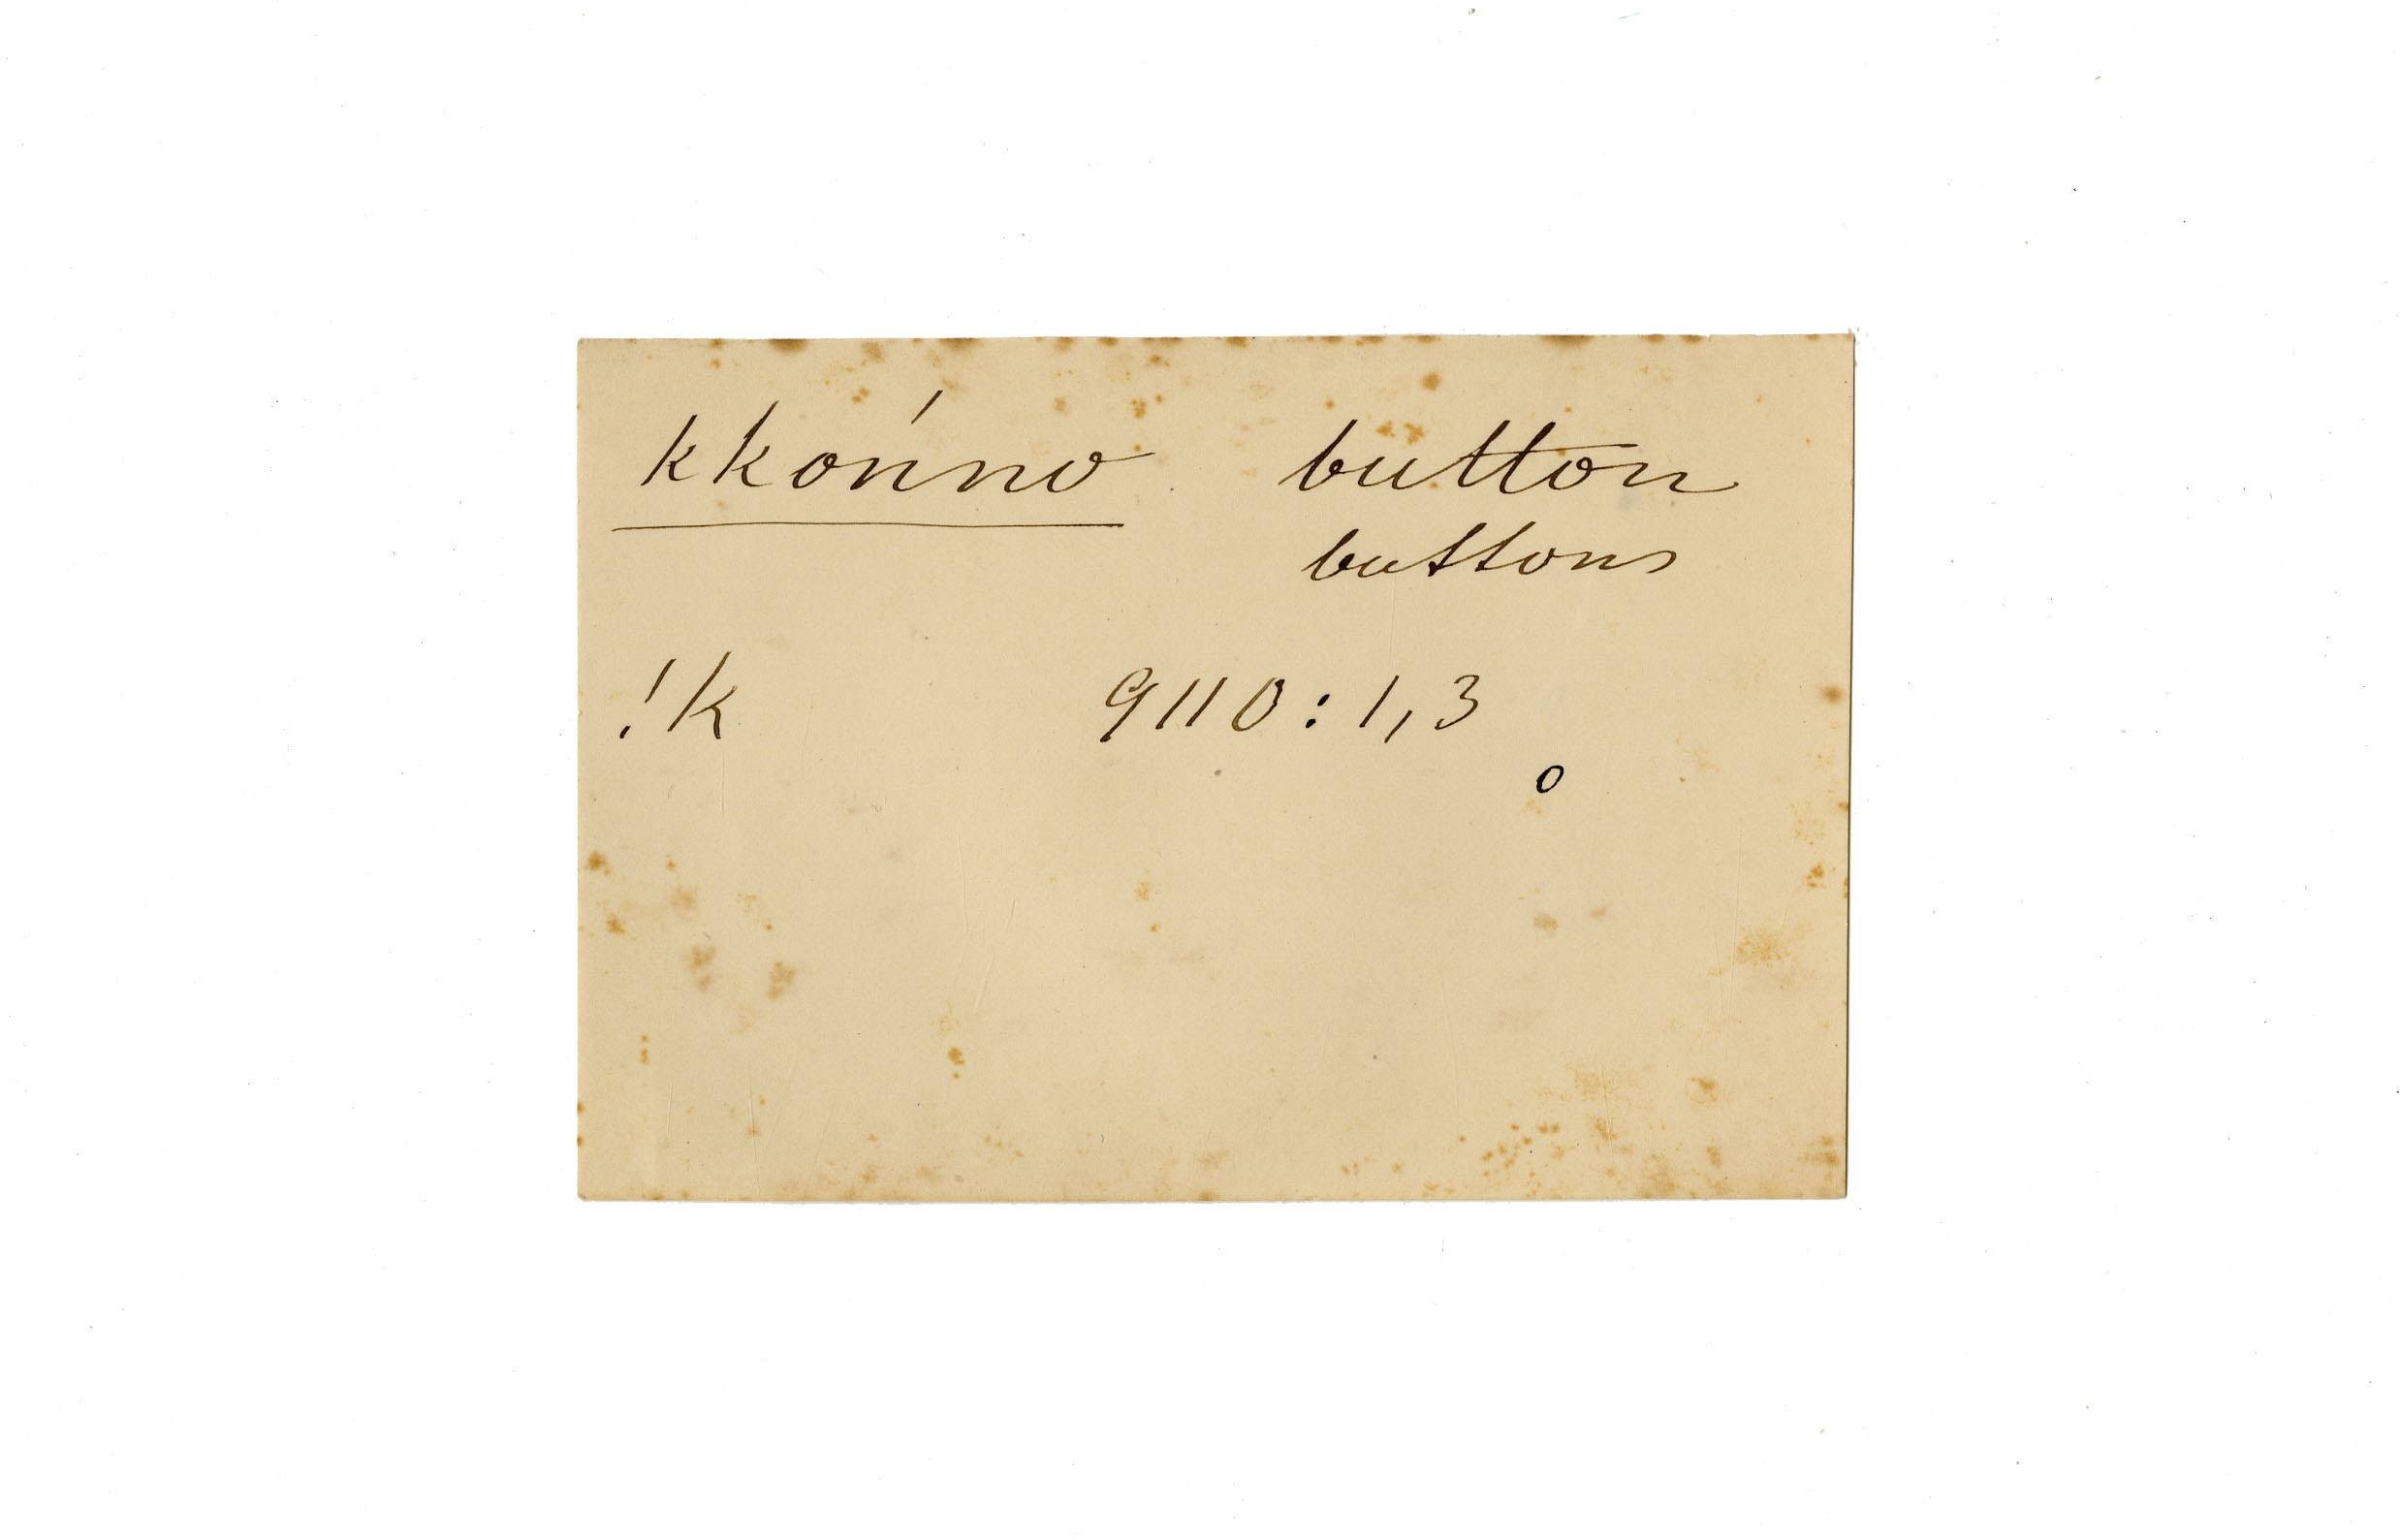 kkońno button
buttons
!k 9110:1,3
o